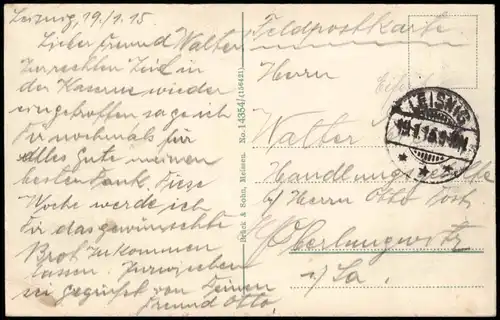 Leisnig, 19./1.15.
Lieber Freund Walter
Zur rechten Zeit in
der Kaserne wieder
eingetroffen sage ich
Dir nochmals für
alles Gute meinen
besten Dank. Diese
Woche werde ich
Dir das gewünschte
Brot zukommen
lassen. Inzwischen
sei gegrüßt von Deinem
Freund Otto.
Brück & Sohn, Meissen. No. 14354 (156421)
Feldpostkarte
Herrn
Walter
LEISNIG
Handlungsgehilfe
b/ Herrn Otto
Oberlungwitz
i/ Sa.